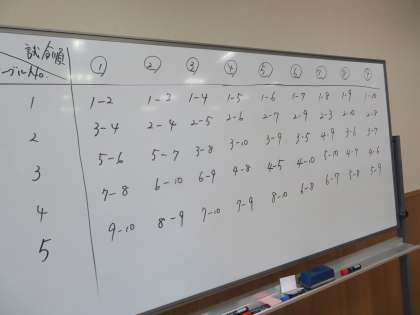 試合順 ① ② ③ ④ ⑤ ⑥ ⑦ ⑧ ⑨
ーブルNo.
1 1-2 1-3 1-4 1-5 1-6 1-7 1-8 1-9 1-10
2 3-4 2-4 2-5 2-6 2-7 2-9 2-3 2-10 2-8
3 5-6 5-7 3-8 3-10 3-9 3-5 4-9 3-6 3-7
4 7-8 6-10 6-9 4-8 4-5 4-10 5-10 4-7 4-6
5 9-10 8-9 7-10 7-9 8-10 6-8 6-7 5-8 5-9